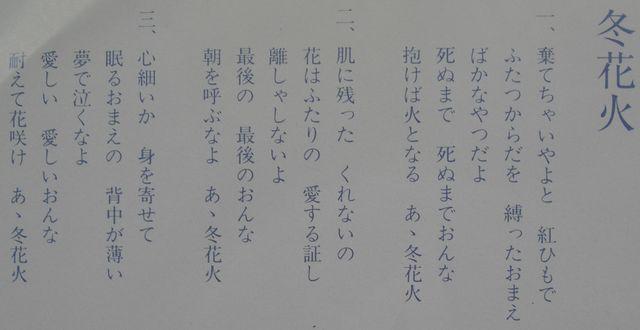 冬花火
一、棄てちゃいやよと 紅ひもで
ふたつからだを 縛ったおまえ
ばかなやつだよ
死ぬまで 死ぬまでおんな
抱けば火となる あゝ冬花火
二、肌に残った くれないの
花はふたりの 愛する証し
離しゃしないよ
最後の 最後のおんな
朝を呼ぶなよ あゝ冬花火
三、心細いか 身を寄せて
眠るおまえの 背中が薄い
夢で泣くなよ
愛しい 愛しいおんな
耐えて花咲け あゝ冬花火